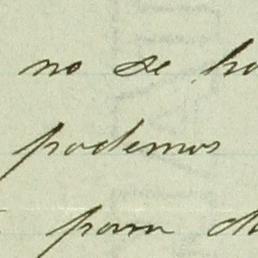 no se
podemos
para